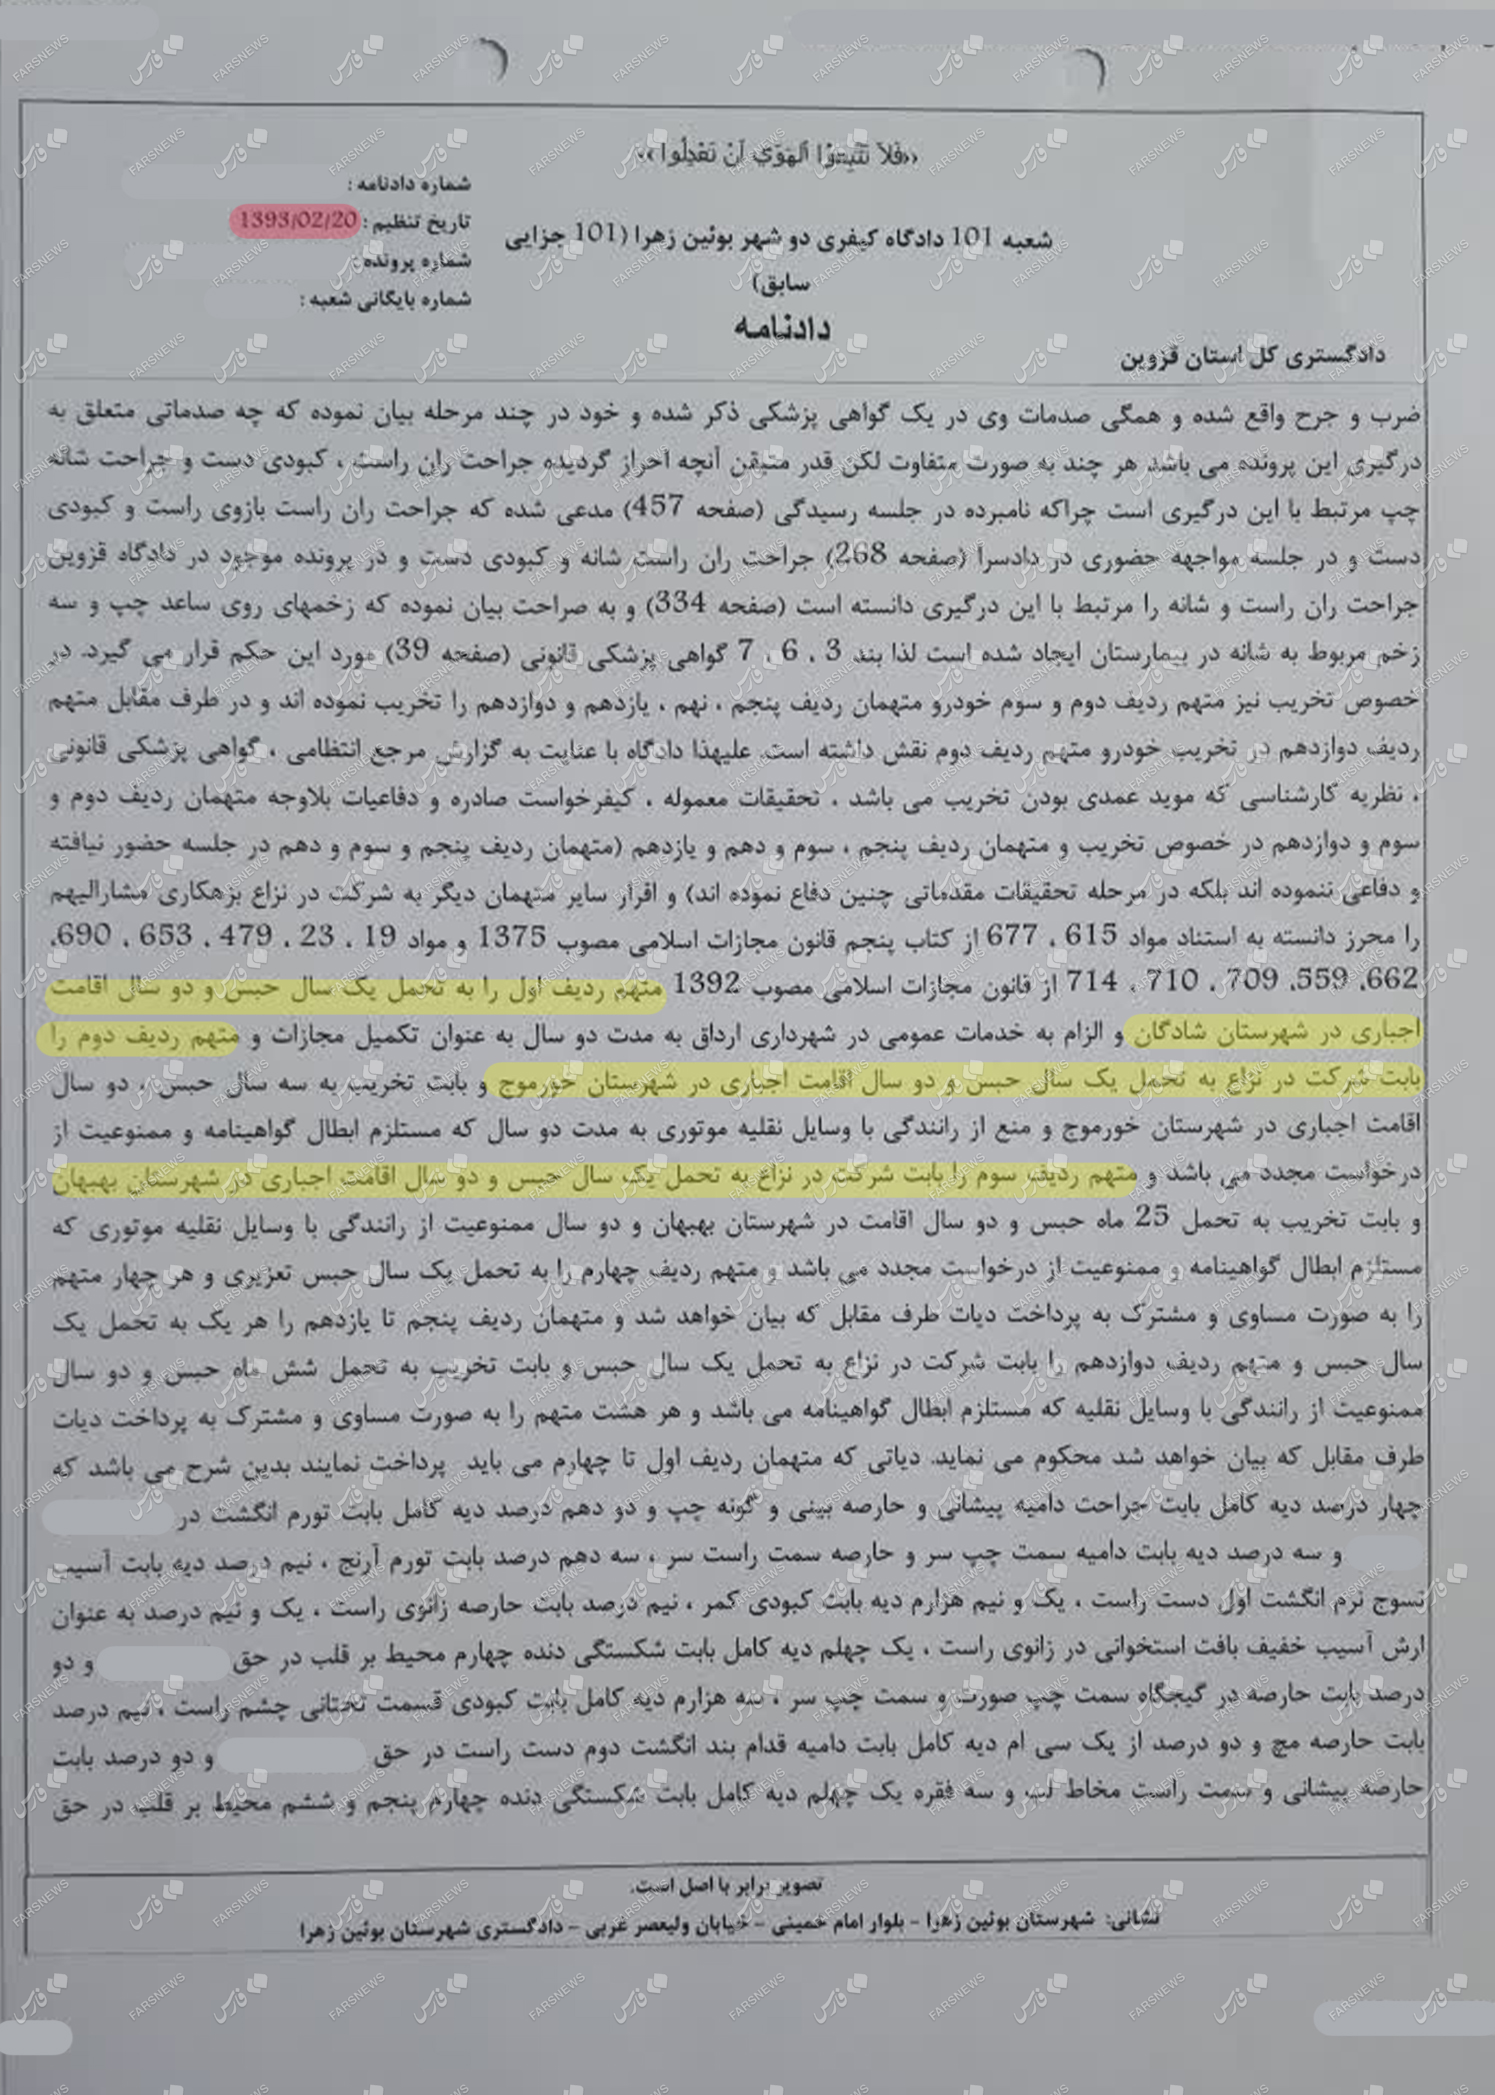 «فَلاَ تَتَّبِعُوا الْهَوَى أَنْ تَعْدِلُوا»
شماره دادنامه :
تاریخ تنظیم : 1393/02/20
شماره پرونده :
شماره بایگانی شعبه :
شعبه 101 دادگاه کیفری دو شهر بوئین زهرا (101 جزایی
سابق)
دادنامه
دادگستری کل استان قزوین
ضرب و جرح واقع شده و همگی صدمات وی در یک گواهی پزشکی ذکر شده و خود در چند مرحله بیان نموده که چه صدماتی متعلق به
درگیری این پرونده می باشد هر چند به صورت متفاوت لکن قدر متیقن آنچه احراز گردیده جراحت ران راست ، کبودی دست و جراحت شانه
چپ مرتبط با این درگیری است چراکه نامبرده در جلسه رسیدگی (صفحه 457) مدعی شده که جراحت ران راست بازوی راست و کبودی
دست و در جلسه مواجهه حضوری در دادسرا (صفحه 268) جراحت ران راست شانه و کبودی دست و در پرونده موجود در دادگاه قزوین
جراحت ران راست و شانه را مرتبط با این درگیری دانسته است (صفحه 334) و به صراحت بیان نموده که زخمهای روی ساعد چپ و سه
زخم مربوط به شانه در بیمارستان ایجاد شده است لذا بند 3 ، 6 ، 7 گواهی پزشکی قانونی (صفحه 39) مورد این حکم قرار می گیرد. در
خصوص تخریب نیز متهم ردیف دوم و سوم خودرو متهمان ردیف پنجم ، نهم ، یازدهم و دوازدهم را تخریب نموده اند و در طرف مقابل متهم
ردیف دوازدهم در تخریب خودرو متهم ردیف دوم نقش داشته است. علیهذا دادگاه با عنایت به گزارش مرجع انتظامی ، گواهی پزشکی قانونی
، نظریه کارشناسی که موید عمدی بودن تخریب می باشد ، تحقیقات معموله ، کیفرخواست صادره و دفاعیات بلاوجه متهمان ردیف دوم و
سوم و دوازدهم در خصوص تخریب و متهمان ردیف پنجم ، سوم و دهم و یازدهم (متهمان ردیف پنجم و سوم و دهم در جلسه حضور نیافته
و دفاعی ننموده اند بلکه در مرحله تحقیقات مقدماتی چنین دفاع نموده اند) و اقرار سایر متهمان دیگر به شرکت در نزاع بزهکاری مشارالیهم
را محرز دانسته به استناد مواد 615 ، 677 از کتاب پنجم قانون مجازات اسلامی مصوب 1375 و مواد 19 ، 23 ، 479 ، 653 ، 690،
662، 559، 709 ، 710 ، 714 از قانون مجازات اسلامی مصوب 1392 متهم ردیف اول را به تحمل یک سال حبس و دو سال اقامت
اجباری در شهرستان شادگان و الزام به خدمات عمومی در شهرداری ارداق به مدت دو سال به عنوان تکمیل مجازات و متهم ردیف دوم را
بابت شرکت در نزاع به تحمل یک سال حبس و دو سال اقامت اجباری در شهرستان خورموج و بابت تخریب به سه سال حبس ، دو سال
اقامت اجباری در شهرستان خورموج و منع از رانندگی با وسایل نقلیه موتوری به مدت دو سال که مستلزم ابطال گواهینامه و ممنوعیت از
درخواست مجدد می باشد و متهم ردیف سوم را بابت شرکت در نزاع به تحمل یک سال حبس و دو سال اقامت اجباری در شهرستان بهبهان
و بابت تخریب به تحمل 25 ماه حبس و دو سال اقامت در شهرستان بهبهان و دو سال ممنوعیت از رانندگی با وسایل نقلیه موتوری که
مستلزم ابطال گواهینامه و ممنوعیت از درخواست مجدد می باشد و متهم ردیف چهارم را به تحمل یک سال حبس تعزیری و هر چهار متهم
را به صورت مساوی و مشترک به پرداخت دیات طرف مقابل که بیان خواهد شد و متهمان ردیف پنجم تا یازدهم را هر یک به تحمل یک
سال حبس و متهم ردیف دوازدهم را بابت شرکت در نزاع به تحمل یک سال حبس و بابت تخریب به تحمل شش ماه حبس و دو سال
ممنوعیت از رانندگی با وسایل نقلیه که مستلزم ابطال گواهینامه می باشد و هر هشت متهم را به صورت مساوی و مشترک به پرداخت دیات
طرف مقابل که بیان خواهد شد محکوم می نماید. دیاتی که متهمان ردیف اول تا چهارم می باید پرداخت نمایند بدین شرح می باشد که
چهار درصد دیه کامل بابت جراحت دامیه پیشانی و حارصه بینی و گونه چپ و دو دهم درصد دیه کامل بابت تورم انگشت در
و سه درصد دیه بابت دامیه سمت چپ سر و حارصه سمت راست سر ، سه دهم درصد بابت تورم آرنج ، نیم درصد دیه بابت آسیب
نسوج نرم انگشت اول دست راست ، یک و نیم هزارم دیه بابت کبودی کمر ، نیم درصد بابت حارصه زانوی راست ، یک و نیم درصد به عنوان
ارش آسیب خفیف بافت استخوانی در زانوی راست ، یک چهلم دیه کامل بابت شکستگی دنده چهارم محیط بر قلب در حق و دو
درصد بابت حارصه در گیجگاه سمت چپ صورت و سمت چپ سر ، سه هزارم دیه کامل بابت کبودی قسمت تحتانی چشم راست ، نیم درصد
بابت حارصه مچ و دو درصد از یک سی ام دیه کامل بابت دامیه قدام بند انگشت دوم دست راست در حق و دو درصد بابت
حارصه پیشانی و سمت راست مخاط لب و سه فقره یک چهلم دیه کامل بابت شکستگی دنده چهارم پنجم و ششم محیط بر قلب در حق
تصویر برابر با اصل است.
نشانی: شهرستان بوئین زهرا - بلوار امام خمینی - خیابان ولیعصر غربی - دادگستری شهرستان بوئین زهرا